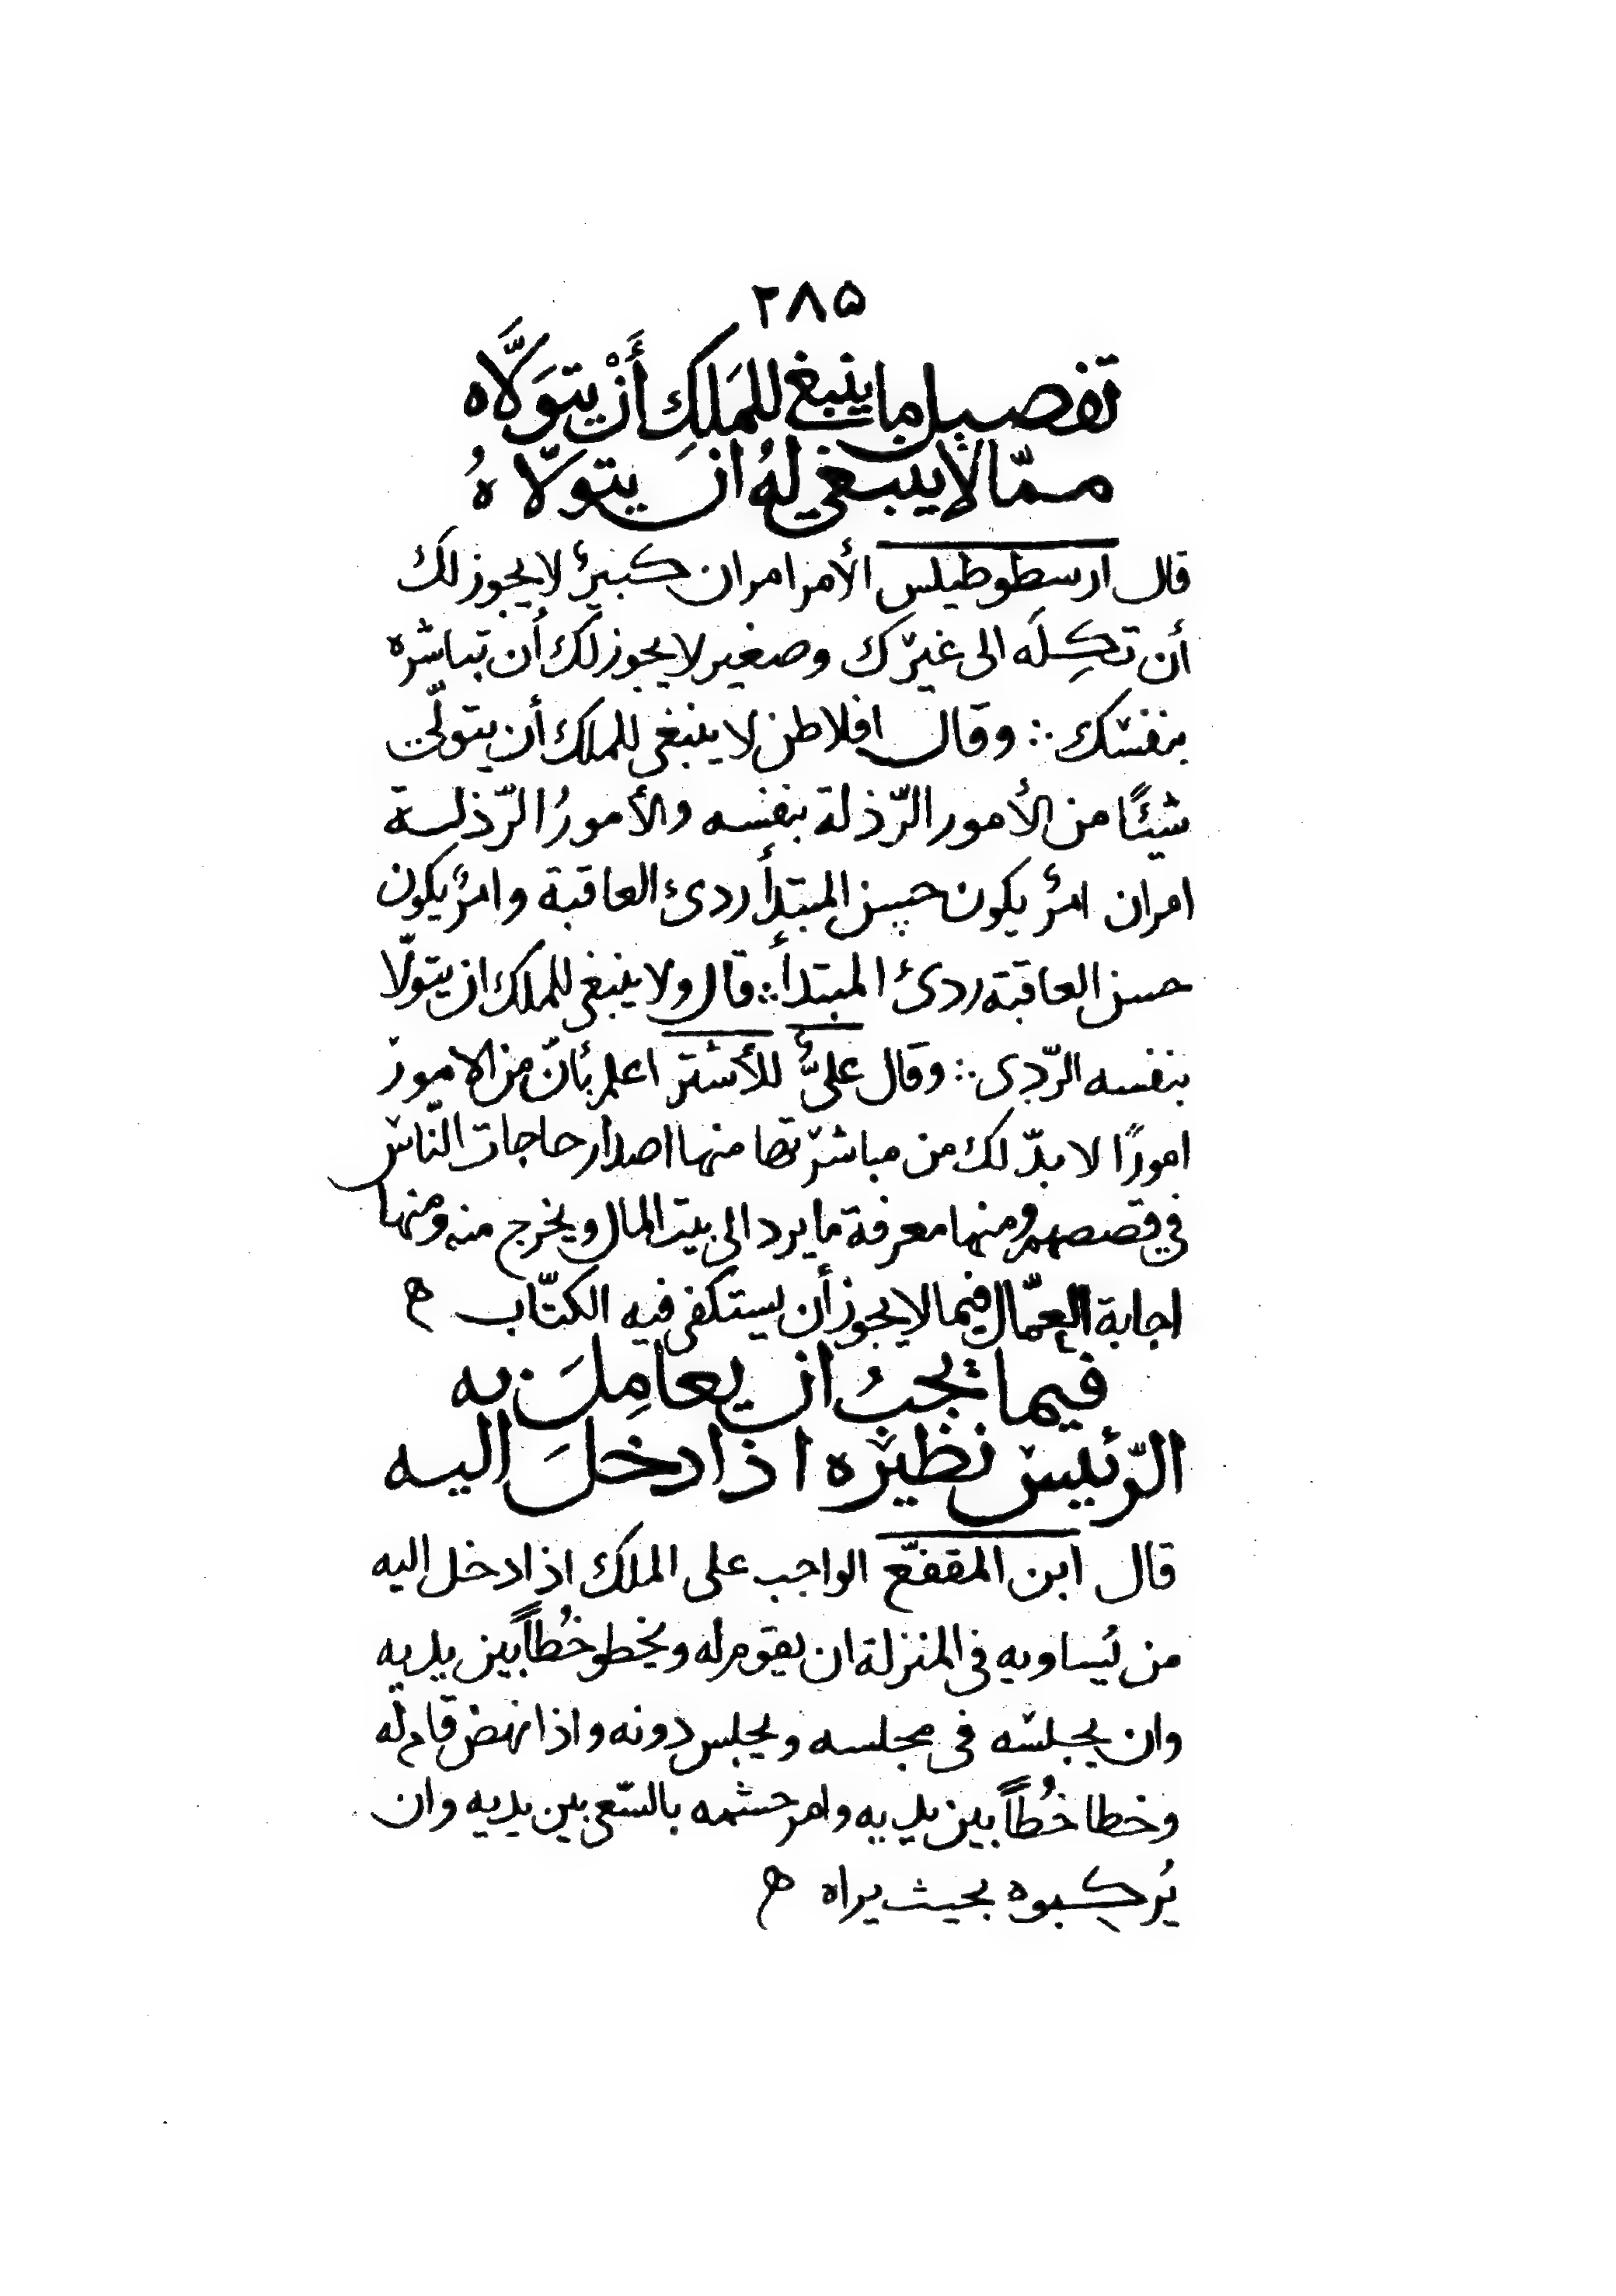 ٢٨٥
تفصيل ما ينبغي للمَلِكِ أَنْ يتوَلَّاه
ممّا لا ينبغي لهُ ان يتولّاهُ
قال ارسطوطيلس الأمر امران كبيرٌ لا يجوز لك
أن تكِلَه الى غيرك وصغير لا يجوز لك أن تباشره
بنفسك ∴ وقال افلاطن لا ينبغي للملك أن يتولّى
شيئًا من الأمور الرّذلة بنفسه والأمورُ الرّذلة
امران امرٌ يكون حسن المبتدأ ردئ العاقبة وامرٌ يكون
حسن العاقبة ردئ المبتدأ ∴ قال ولا ينبغي للملك ان يتولّا
بنفسه الرّدى ∴ وقال علىٌّ للأشتر اعلم بأنّ من الامور
امورًا لا بدّ لك من مباشرتها منها اصدار حاجات النّاس
في قصصهم ومنها معرفة ما يرد الى بيت المال ويخرج منه ومنها
اجابة العمّال فيما لا يجوز أن يستكفى فيه الكتّاب ه
فيما يجبُ ان يعامِلَ به
الرّئيس نظيره اذا دخلَ اليه
قال ابن المقفّع الواجب على الملك اذا دخل اليه
من يُساويه في المنزلة ان يقوم له ويخطو خُطاً بين يديه
وان يجلسه في مجلسه ويجلس دونه واذا نهض قام له
وخطا خُطاً بين يديه وامر حشمه بالسّعى بين يديه وان
يُركبوه بحيث يراه ه